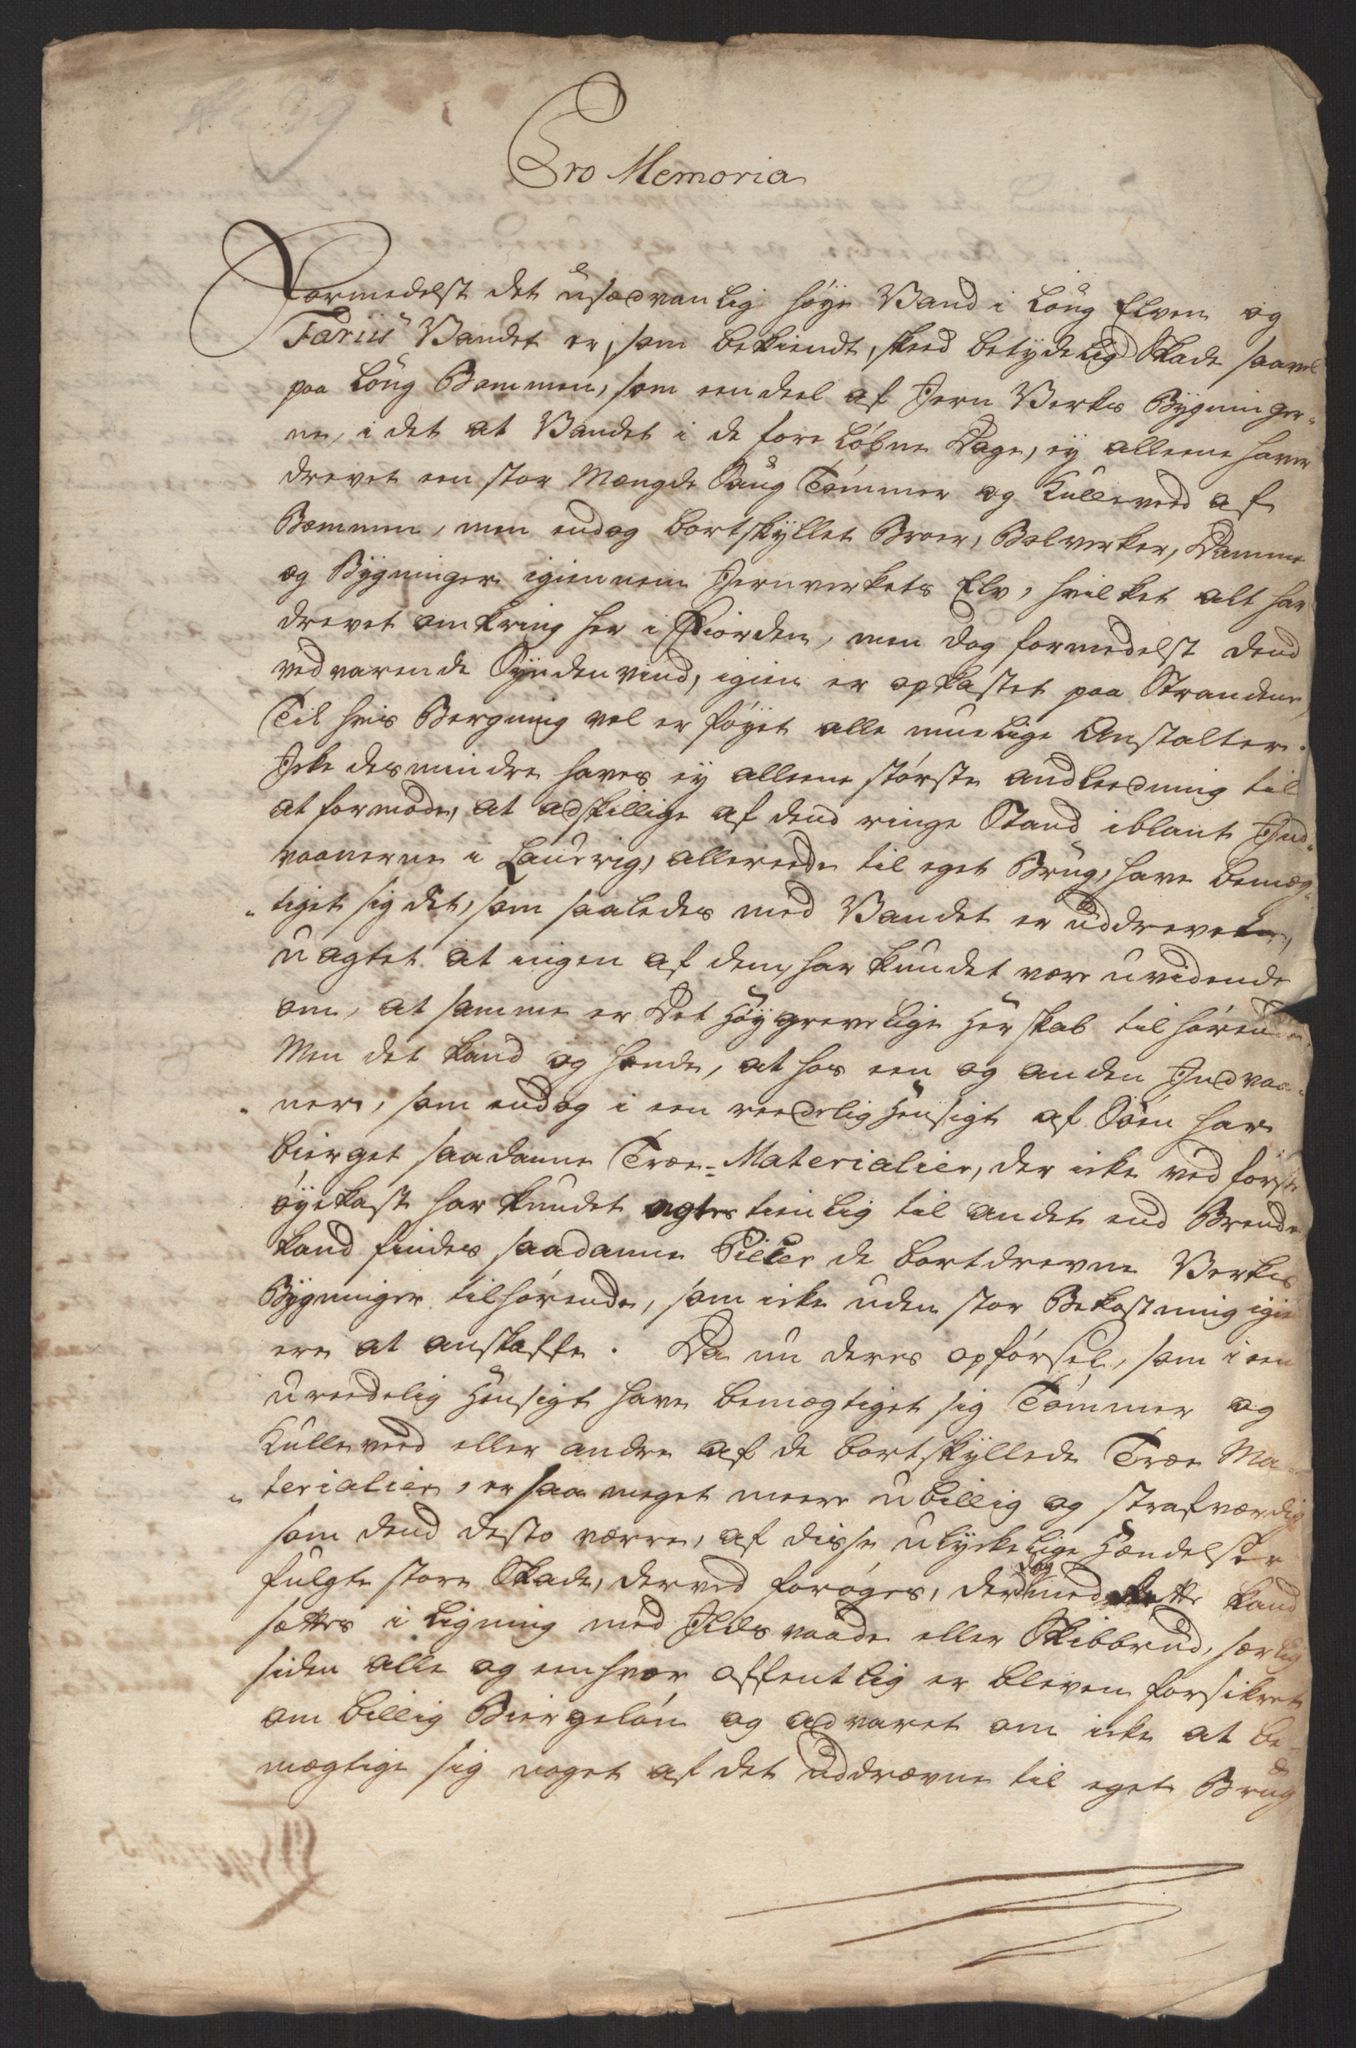 No 39
Pro Memoria
Formedelst det usædvanlig høye Vand i Loug Elven og
Fariis Vandet er, som bekiendt, skeed betydelig Skade saavel
paa Loug Bommen, som een deel af Jern Verks Bygninger-
ne, i det at Vandet i de fore løbne Dage, ey alleene haver
drevet een stor Mængde Saug Tømmer og Kulleveed af
Bommen, men endog bortskyllet Broer, Bolverker, Damme
og Bygninger igiennem Jernverkets Elv, hvilket alt har
drevet omkring her i Fiorden, men dog formedelst dend
vedvarende Syndenvind, igien er opkastet paa Strandene,
Til hvis Bergning vel er føyet alle muelige Anstalter.
Icke desmindre haves ey alleene største andleedning til
at formode, at adskillige af dend ringe Stand iblant Ind-
vaanerne i Laurvig, allereede til eget Brug, have bemæg-
tiget sig det, som saaledes med Vandet er uddreven,
uagtet at ingen af dem har kundet være uvidende
om, at samme er Det Høygrevelige Herskab tilhørende
Men det kand og hænde, at hos een og anden Indvaa-
ner, som endog i een reedelig Hensigt af Søen har
bierget saadanne Træ-Materialier, der icke ved første
øyekast har kundet agtes tienlig til andet end Brende
kand findes saadanne Piecer de bortdrevne Verks
Bygninger tilhørende, som icke uden stor Bekostning igien
ere at anskaffe. Da nu deres opførsel, som i een
ureedelig Hensigt have bemægtiget sig Tømmer og
Kulleveed eller andre af de bortskyllede Træ Ma-
terialier, er saa meget meere ubillig og strafværdig
som dend desto værre, af disse ulyckelige Hændelser
fulgte store Skade, derved forøges, der dog med rette kand
sættes i Ligning med Ildsvaade eller Skibbrud, særlig
siden alle og eenhver offentlig er bleven forsikret
om billig Biergeløn og advaret om icke at be-
mægtige sig noget af det uddrævne til eget Brug